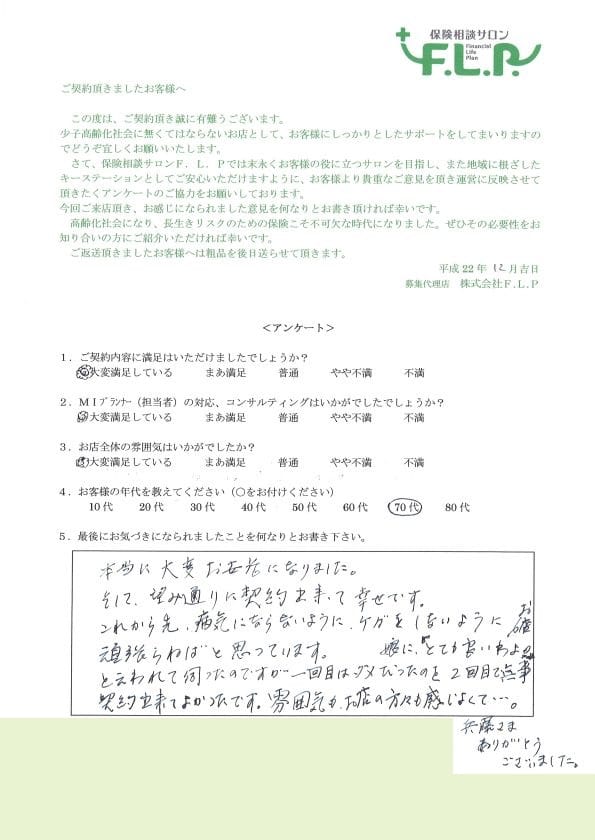 保険相談サロン
F.L.P.
Financial
Life
Plan
ご契約頂きましたお客様へ
この度は、ご契約頂き誠に有難うございます。
少子高齢化社会に無くてはならないお店として、お客様にしっかりとしたサポートをしてまいりますの
でどうぞ宜しくお願いいたします。
さて、保険相談サロンF.L.Pでは末永くお客様の役に立つサロンを目指し、また地域に根ざした
キーステーションとしてご安心いただけますように、お客様より貴重なご意見を頂き運営に反映させて
頂きたくアンケートのご協力をお願いしております。
今回ご来店頂き、お感じになられました意見を何なりとお書き頂ければ幸いです。
高齢化社会になり、長生きリスクのための保険こそ不可欠な時代になりました。ぜひその必要性をお
知り合いの方にご紹介いただければ幸いです。
ご返送頂きましたお客様へは粗品を後日送らせて頂きます。
平成22年 12月吉日
募集代理店 株式会社F.L.P
<アンケート>
1.ご契約内容に満足はいただけましたでしょうか?
大変満足している まあ満足 普通 やや不満 不満
2.MIプランナー(担当者)の対応、コンサルティングはいかがでしたでしょうか?
大変満足している まあ満足 普通 やや不満 不満
3.お店全体の雰囲気はいかがでしたか?
大変満足している まあ満足 普通 やや不満 不満
4.お客様の年代を教えてください(○をお付けください)
10代 20代 30代 40代 50代 60代 70代 80代
5.最後にお気づきになられましたことを何なりとお書き下さい。
本当に大変お世話になりました。
そして、望み通りに契約出来て幸せです。
これから先、病気にならないように、ケガをしないように
頑張らねばと思っています。 娘に、"とても良いお店よ"
と云われて伺ったのですが一回目はダメだったのを2回目で無事
契約出来てよかったです。雰囲気も、お店の方々も感じよくて…。
兵藤さま
ありがとう
ございました。